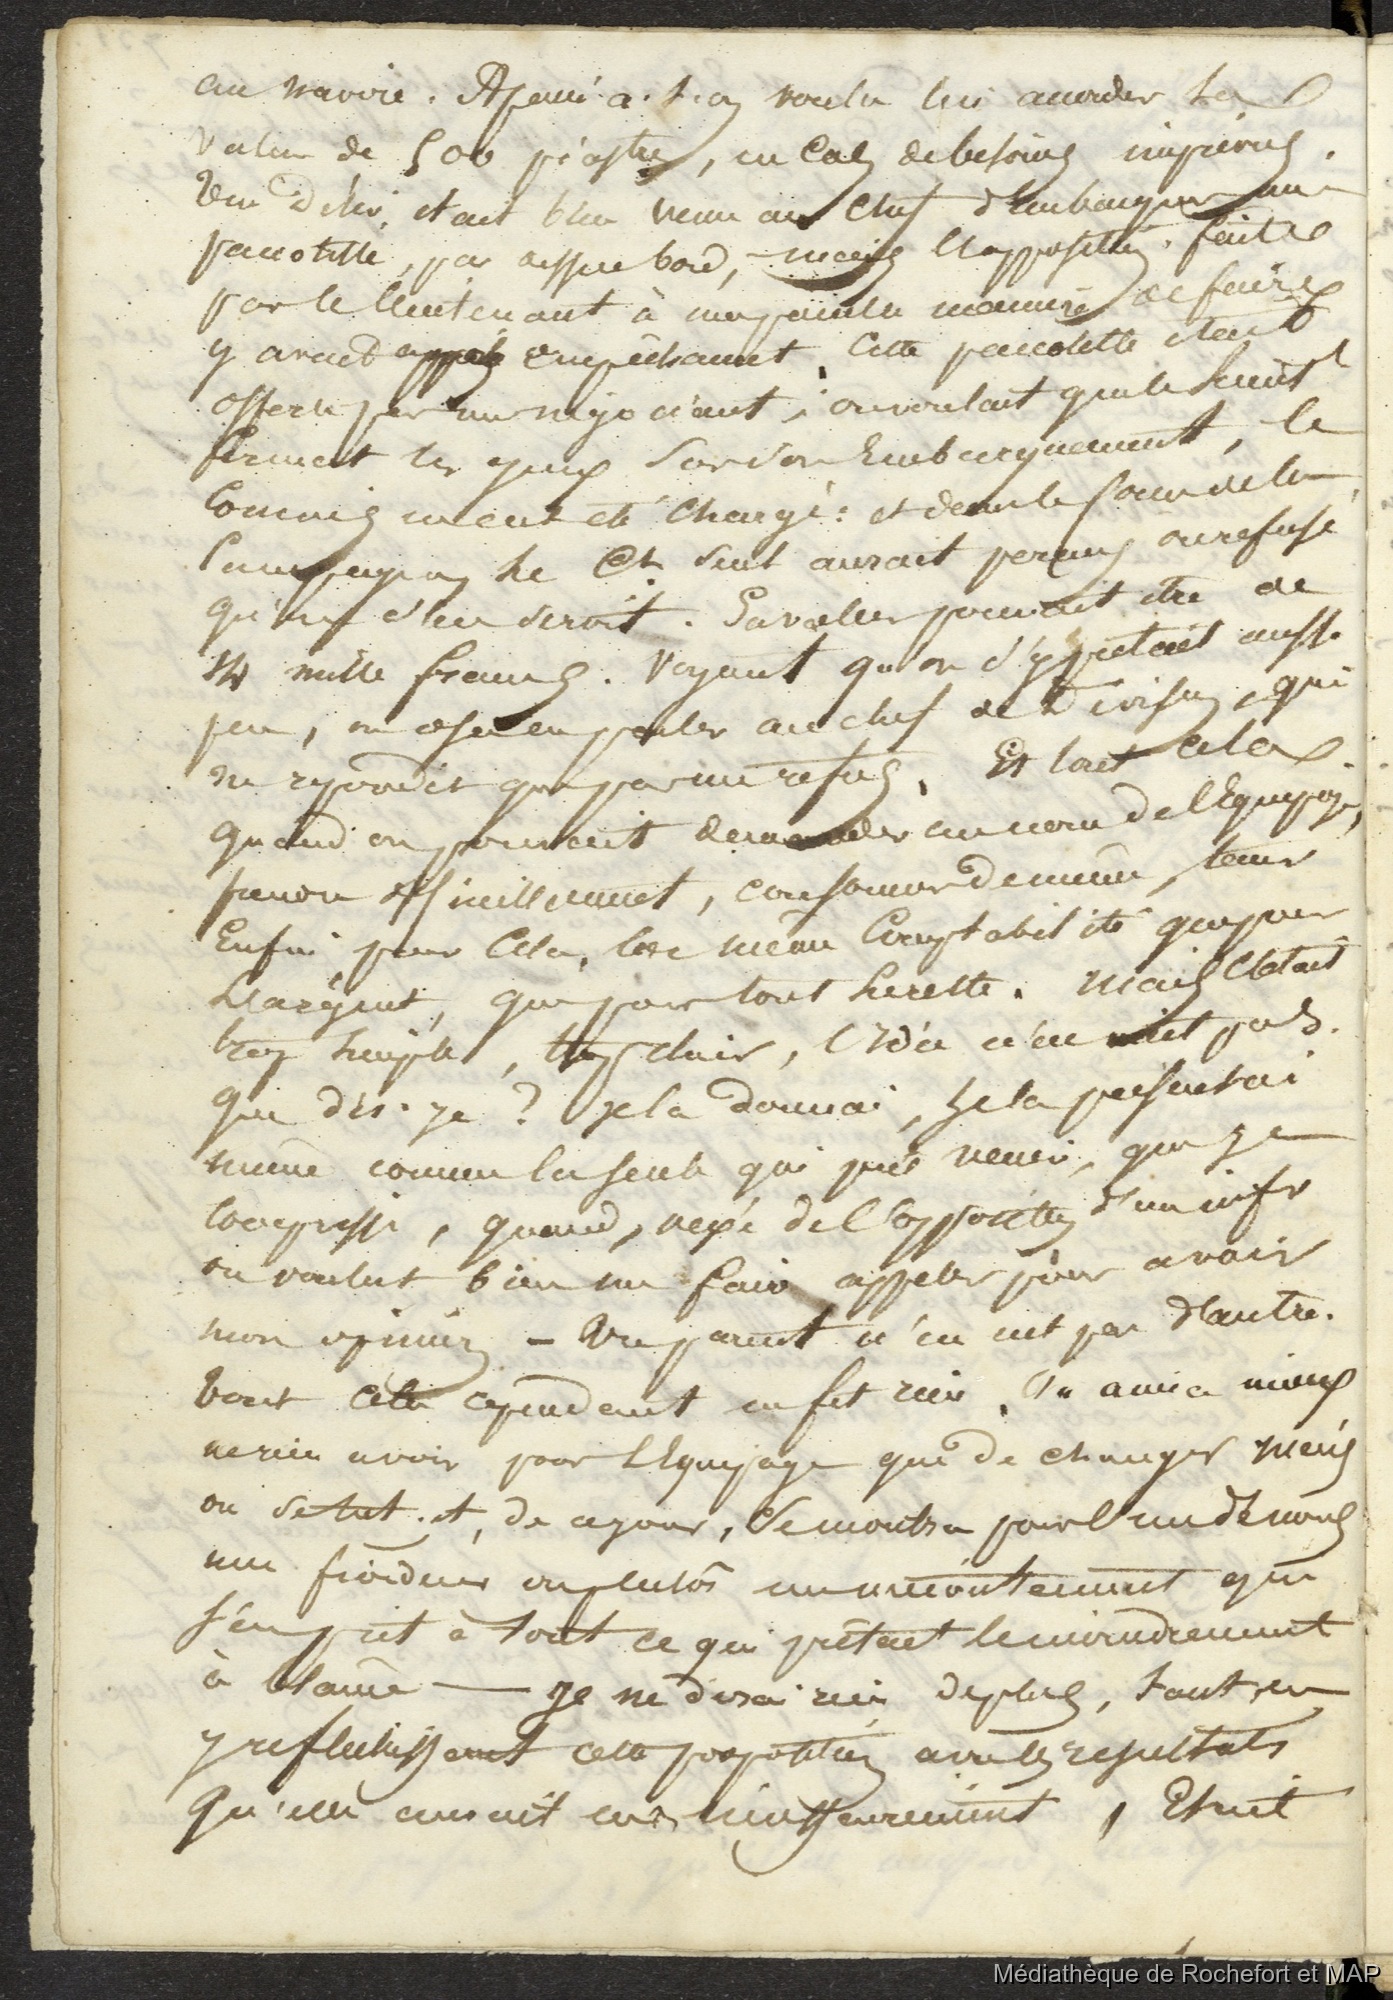 au navire. a-t-on voulu lui accorder la
valeur de 500 piastres, en cas de besoins imprévus.
Un désir était bien venu au chef d'embarquer une
pacotille, par dessus bord, mais l'opposition faite
par le lieutenant à manière de faire
y avait empêchement. Cette pacotille était
offerte par un négociant ; on voulait que le Lieutt
fermat les yeux sur son Embarquement, le
Commis en eut été chargé : et dans le cours de la
Campagne le Ct seul aurait permis ou refusé
qu'on s'en servit. Sa valeur pouvait être de
mille francs. Voyant qu'on s'y prêtait aussi
peu, on osa en parler au chef de Division, qui
ne répondit que par un refus. Et tout cela
quand on pouvait demander au nom de l'Equipage,
consommer de même, tenir
Enfin pour cela, la même Comptabilité que pour
l'argent, que pour tout le reste. Mais c'était
trop simple, trop clair, l'idée n'en vint pas.
Que dis-je ? je la donnai, je la présentai
même comme la seule qui put venir, que je
, quand, vexé de l'opposition d'un infr
on voulut bien me faire appeler pour avoir
mon opinion – n'en eut pas d'autre.
Tout cela cependant en fut rien. On aima mieux
ne rien avoir pour l'Equipage que de changer mais
on se tut. et, de ce jour, se montra pour l'un de nous
une froideur ou plutôt un mécontentement qui
s'en prit à tout ce qui prêtait le moindrement
à blâme — je ne dirai rien de plus, tout en
y réfléchissant cette proposition avec les résultats
qu'elle aurait eus , Etait
Médiathèque de Rochefort et MAP